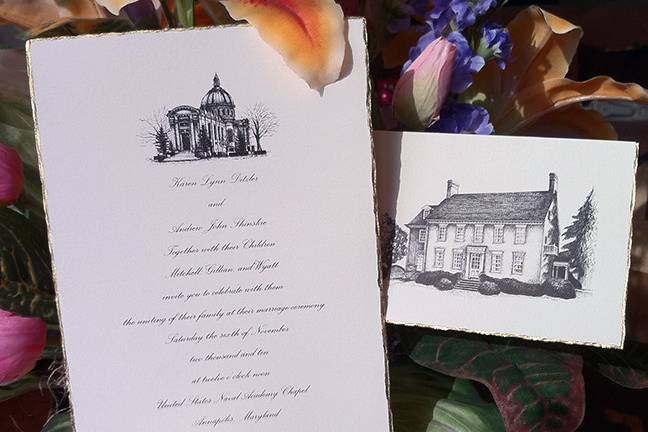 Karen Lynn Ditzler
and
Andrew John Shinskie
Together with their Children
Mitchell Gillian, and Wyatt
invite you to celebrate with them
the uniting of their family at their marriage ceremony
Saturday the sixth of November
two thousand and ten
at twelve o'clock noon
United States Naval Academy Chapel
Annapolis, Maryland